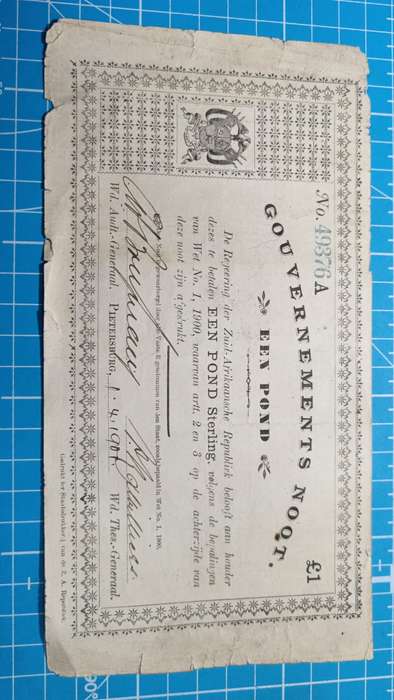 No. 49376 A
£1
GOUVERNEMENTS NOOT.
EEN POND
De Regeering der Zuid-Afrikaansche Republiek belooft aan houder
dezes te betalen EEN POND Sterling, volgens de bepalingen
van Wet No. 1, 1900, waarvan artt. 2 en 3 op de achterzijde van
deze noot zijn afgedrukt.
Wet No. 1, 1900.
Wd. Aud.-Generaal. PIETERSBURG, 1.4.1901 Wd. Thes.-Generaal.
Gedrukt ter Staatsdrukkerij van de Z. A. Republiek
90°